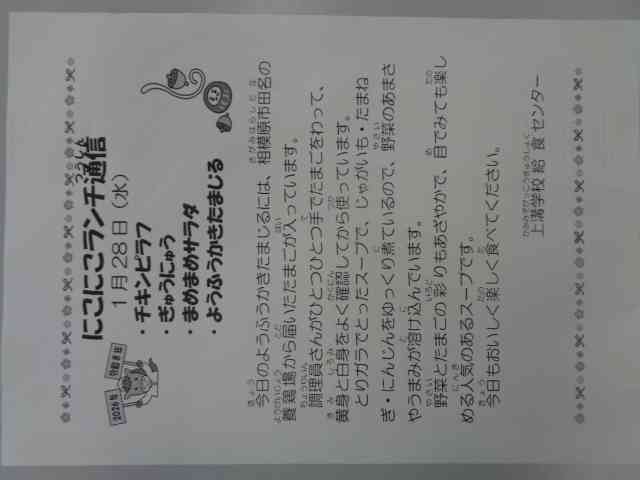 2026年 令和8年
にこにこランチ通信
1月28日（水）
・チキンピラフ
・ぎゅうにゅう
・まめまめサラダ
・ようふうかきたまじる
今日のようふうかきたまじるには、相模原市田名の
養鶏場から届いたたまごが入っています。
調理員さんがひとつひとつ手でたまごをわって、
黄身と白身をよく確認してから使っています。
とりガラでとったスープで、じゃがいも・たまね
ぎ・にんじんをゆっくり煮ているので、野菜のあまさ
やうまみが溶け込んでいます。
野菜とたまごの彩りもあざやかで、目でみても楽し
める人気のあるスープです。
今日もおいしく楽しく食べてください。
上溝学校給食センター